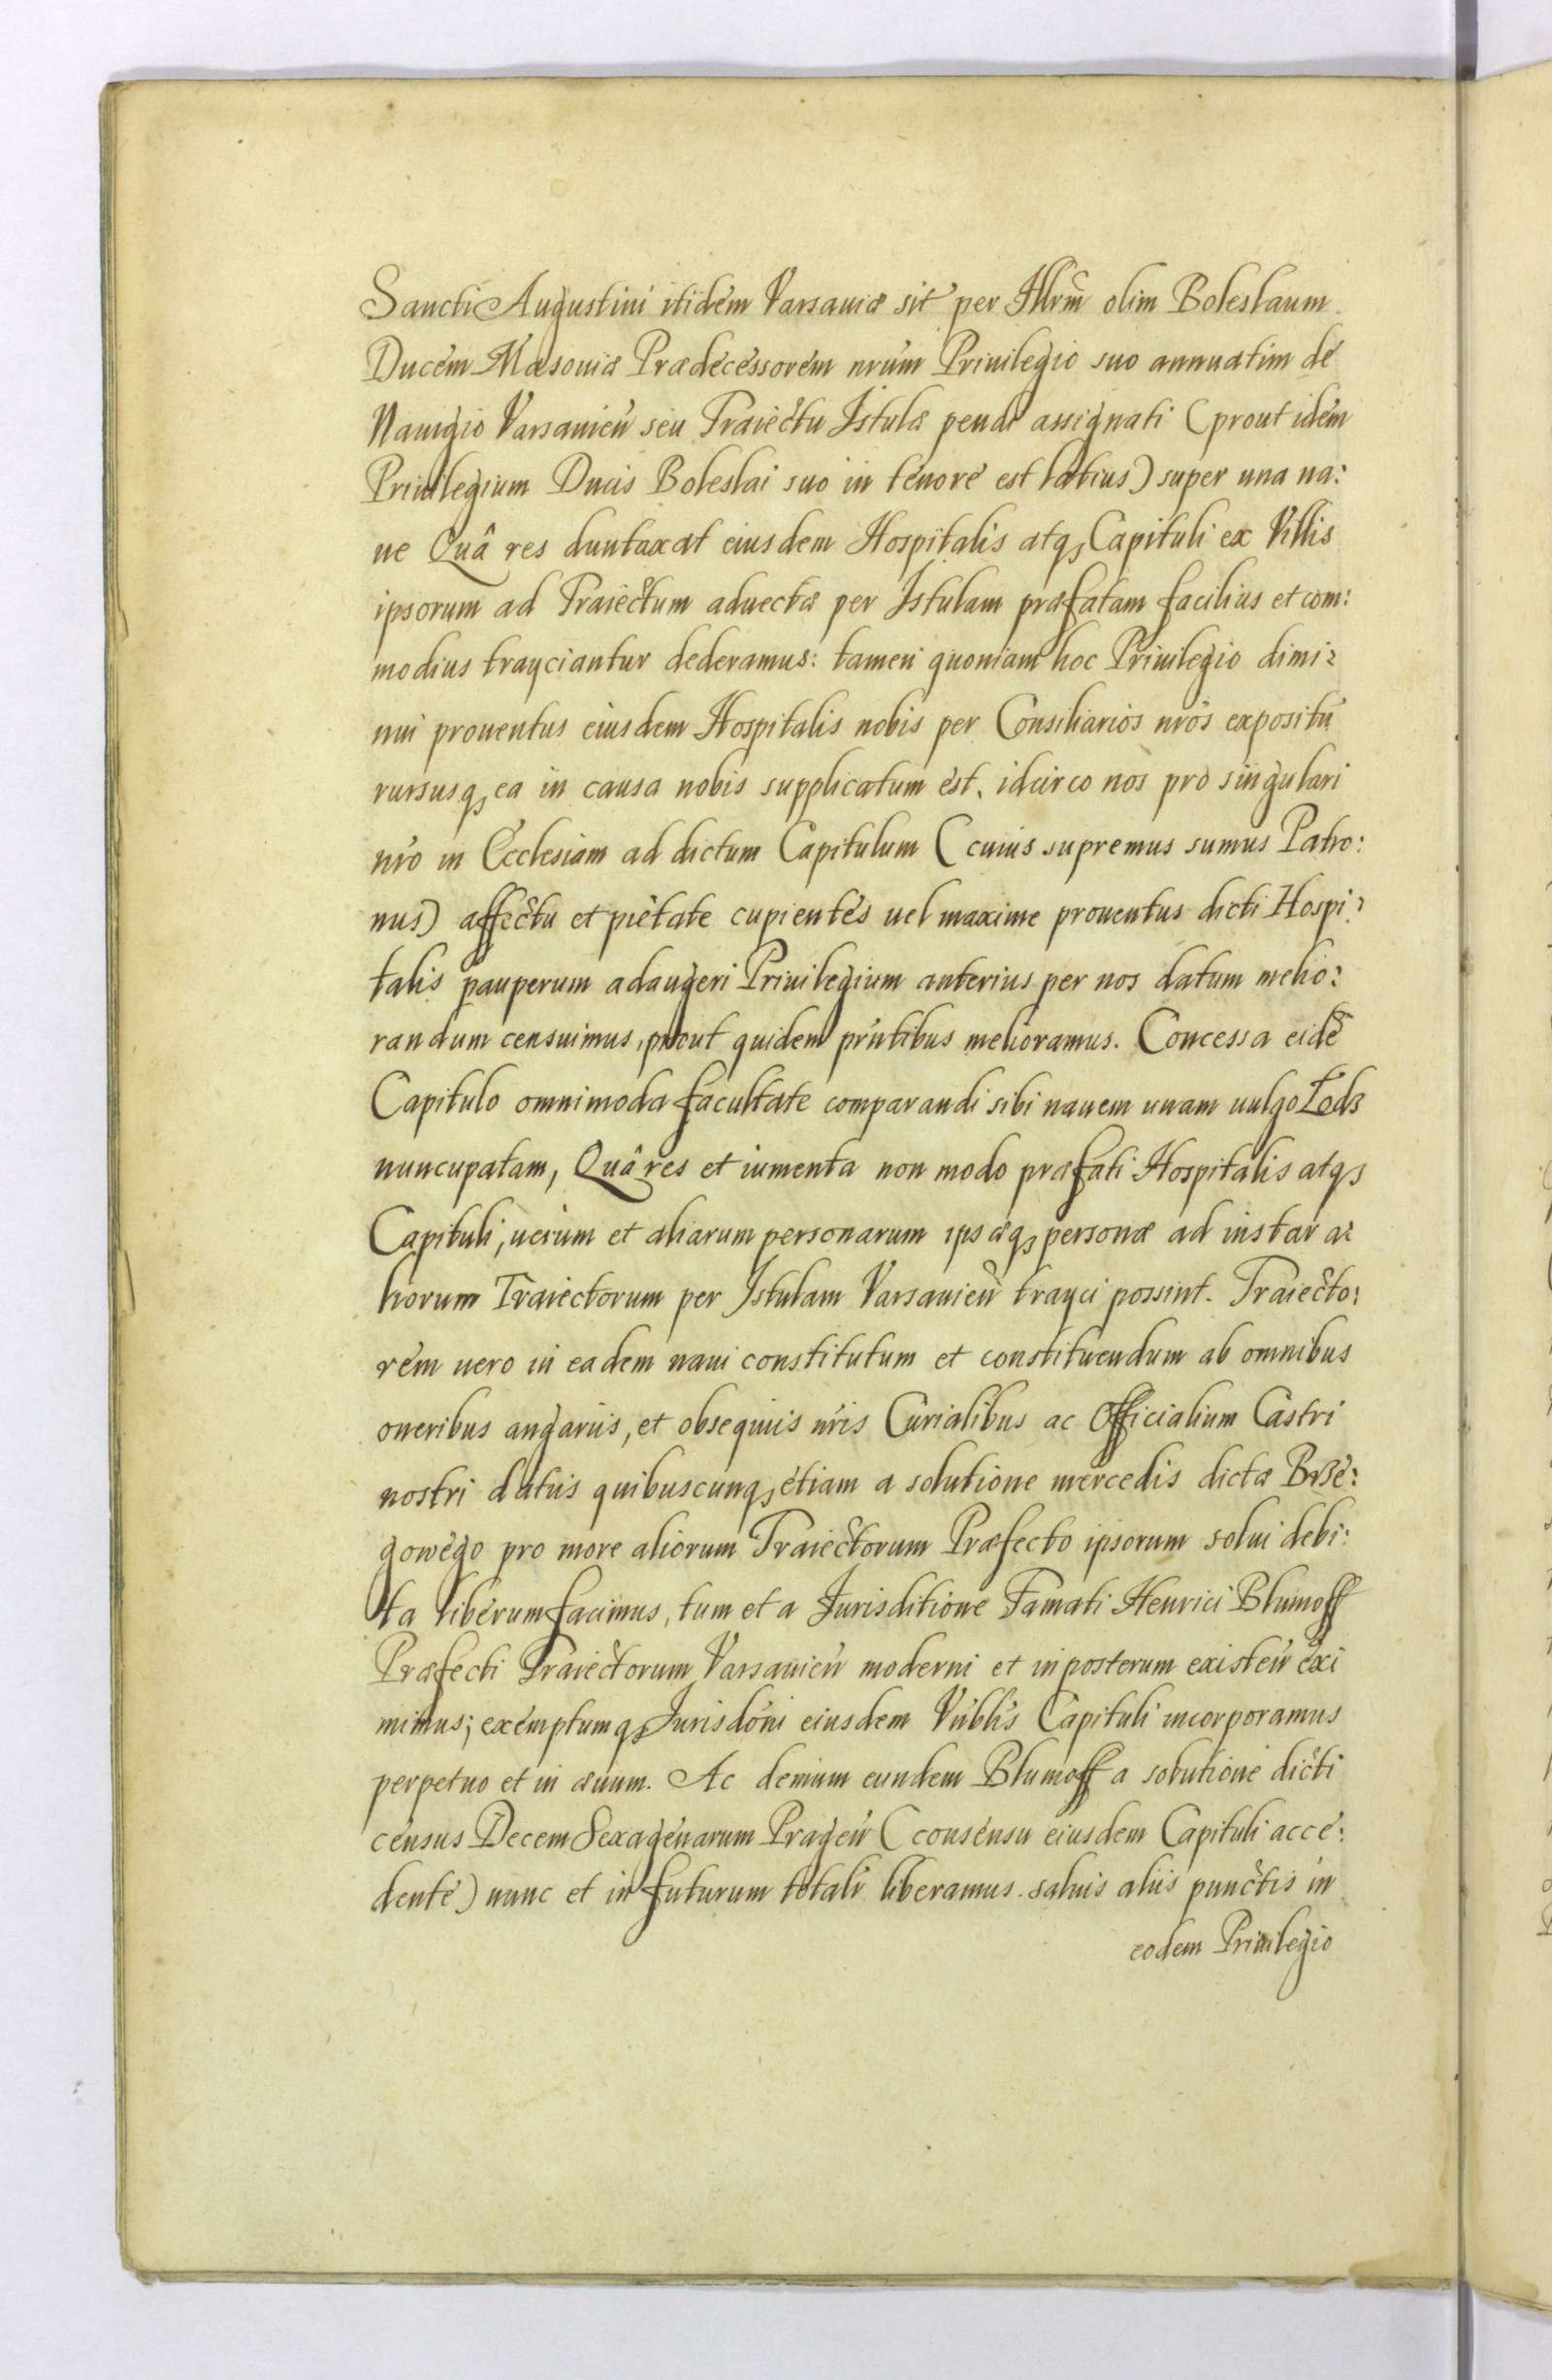 Sancti Augustini itidem Varsauiæ sit per Illrm̃ olim Boleslaum
Ducem Masouiæ Prædecessorem nrũm Priuilegio suo annuatim de
Nauigio Varsauień seu Traiectu Istulæ pendi assignati (prout idem
Priuilegium Ducis Boleslai suo in tenore est latius) super una na:
ue Quâ res duntaxat eiusdem Hospitalis atqȝ Capituli ex Villis
ipsorum ad Traiectum aduectæ per Istulam præfatam facilius et com:
modius trayciantur dederamus: tamen quoniam hoc Priuilegio dimi:
nui prouentus eiusdem Hospitalis nobis per Consiliarios nrós expositũ
rursusqȝ ea in causa nobis supplicatum est, idcirco nos pro singulari
nró in Ecclesiam ad dictum Capitulum (cuius supremus sumus Patro:
nus) affectu et pietate cupientes uel maxime prouentus dicti Hospi:
talis pauperum adaugeri Priuilegium anterius per nos datum melio:
randum censuimus, prout quidem prńtibus melioramus. Concessa eidẽ
Capitulo omnimoda facultate comparandi sibi nauem unam uulgo Łodz
nuncupatam, Quâ res et iumenta non modo præfati Hospitalis atqȝ
Capituli, uerum et aliarum personarum ipsæqȝ personæ ad instar a:
liorum Traiectorum per Istulam Varsauień trayci possint. Traiecto:
rem uero in eadem naui constitutum et constituendum ab omnibus
oneribus angariis, et obsequiis nrís Curialibus ac Officialium Castri
nostri datiis quibuscunqȝ etiam a solutione mercedis dictæ Brze:
gowego pro more aliorum Traiectorum Præfecto ipsorum solui debi:
ta liberum facimus, tum et a Jurisditione Famati Henrici Blumoff
Præfecti Traiectorum Varsauień moderni et inposterum existeń exi
mimus; exemptumqȝ Jurisdóni eiusdem Vńblis Capituli incorporamus
perpetuo et in æuum. Ac demum eundem Blumoff a solutione dicti
census Decem Sexagenarum Prageń (consensu eiusdem Capituli acce:
dente) nunc et in futurum totali liberamus. saluis aliis punctis in
eodem Priuilegio